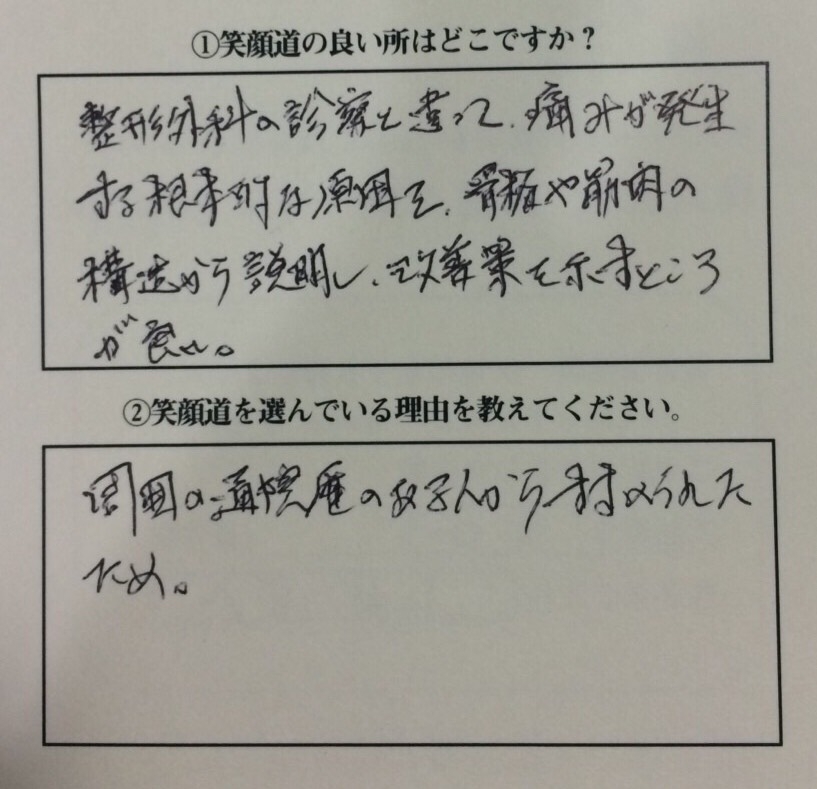 ①笑顔道の良い所はどこですか？
整形外科の診察と違って、痛みが発生
する根本的な原因を、骨板や筋肉の
構造から説明し、改善案を示すところ
が良い。
②笑顔道を選んでいる理由を教えてください。
周囲の通院歴の友人からすすめられた
ため。